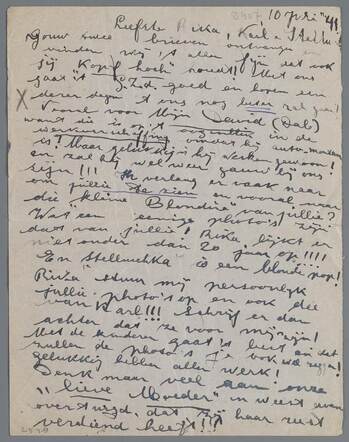 10 Juli '41
Liefste Rika, Karl + Stella
Jouw twee brieven ontvangen
vinden wij 't allen fijn dat ook
jij "Kopf hoch" houdt!! Met ons
gaat 't g.z.d. goed en hopen een
dezer dagen 't ons nog beter zal gaan!
Vooral voor mijn David (Dab)
want die is
werkverruiming omdat hij
is! Maar gelukkig is hij
en zal hij wel weer gauw bij ons
zijn!!! Ik verlang er vaak naar
om jullie te zien en vooral naar
die kleine "Blondine" van jullie?
Wat een eenige photo's zijn
dat van jullie! Rika, lijkt er
niet ouder dan 20 jaar op!!!!
En Stelluchka is een blonde pop!
Rika stuur mij persoonlijk
jullie photo's op en ook die
van Karl!!! Schrijf er dan
achter dat ze voor mij zijn!
Met de kinderen gaat 't best en dat
zullen de photo's je ook wel zeggen!
Gelukkig hebben allen werk!
Denk maar veel aan onze
"lieve Moeder" en weest ervan
overtuigd, dat zij haar rust
verdiend heeft!!!